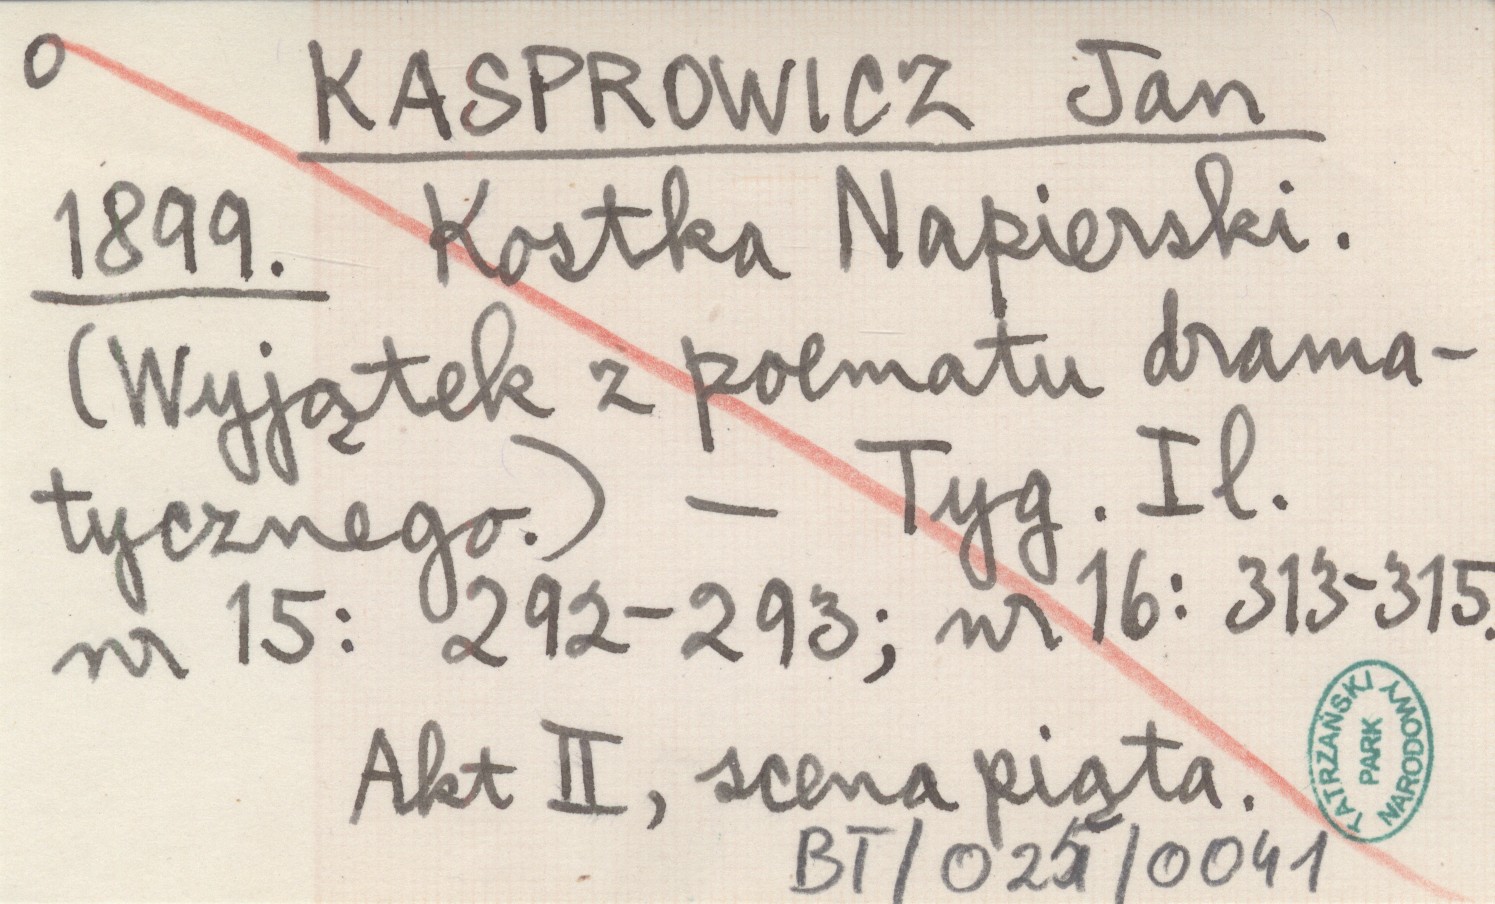 O
KASPROWICZ Jan
1899. Kostka Napierski.
(Wyjątek z poematu drama-
tycznego.) — Tyg. Il.
nr 15: 292-293; nr 16: 313-315.
Akt II, scena piąta.
TATRZAŃSKI
PARK
NARODOWY